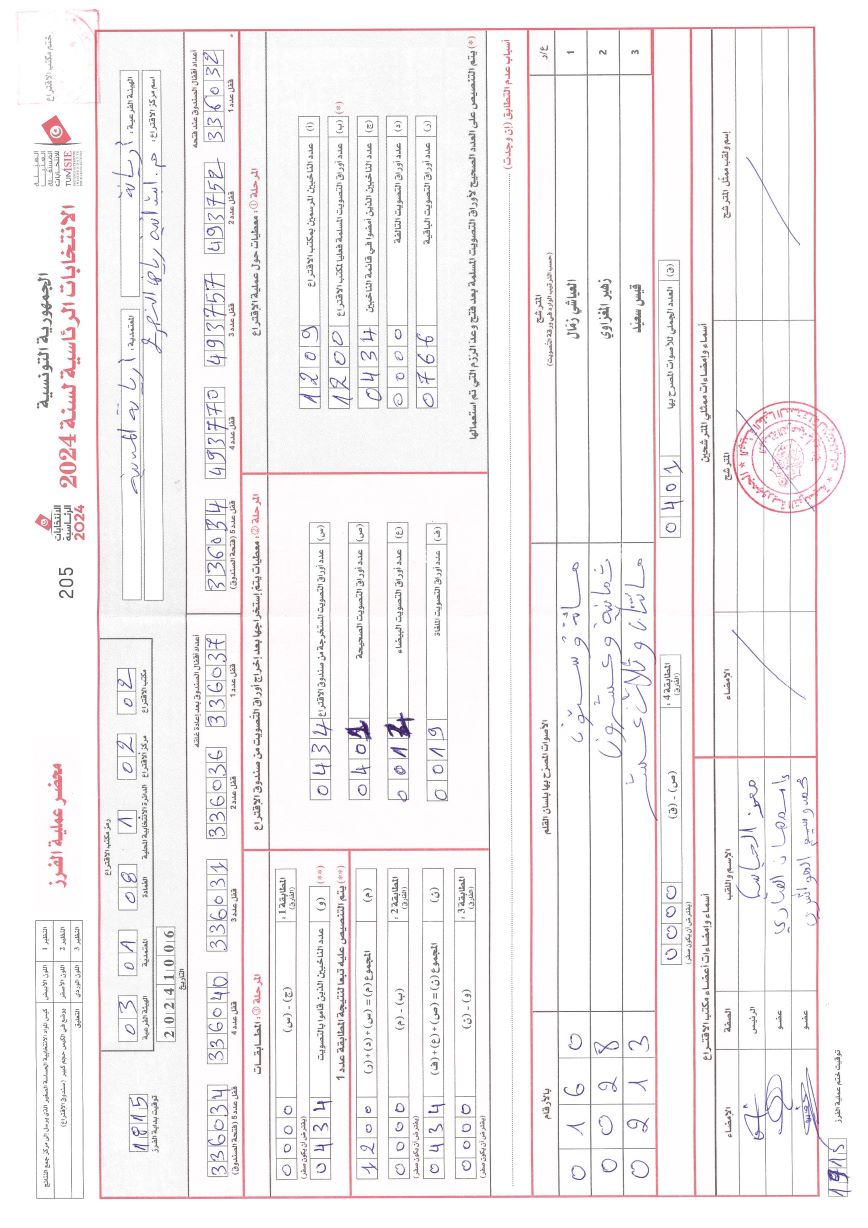 الجمهورية التونسية
الانتخابات الرئاسية لسنة 2024
الانتخابات
الرئاسية
2024
205
محضر عملية الفرز
ختم مكتب الاقتراع
الهيئة الفرعية : أريانة
المعتمدية : أريانة المدينة
اسم مركز الاقتراع :
النظير 1 اللون الأبيض
النظير 2 اللون الأصفر
النظير 3 اللون الوردي التعليق
رمز مكتب الاقتراع
الهيئة الفرعية 03
المعتمدية 01
العمادة 08
الدائرة الانتخابية المحلية 1
مركز الاقتراع 02
مكتب الاقتراع 02
التاريخ
20241006
توقيت بداية الفرز
1815
أعداد أقفال الصندوق عند فتحه
336032 قفل عدد 1
493752 قفل عدد 2
493757 قفل عدد 3
493770 قفل عدد 4
336034 قفل عدد 5 (فتحة الصندوق)
أعداد أقفال الصندوق بعد إعادة غلقه
336037 قفل عدد 1
336036 قفل عدد 2
336031 قفل عدد 3
336040 قفل عدد 4
336034 قفل عدد 5 (فتحة الصندوق)
المرحلة ① : معطيات حول عملية الاقتراع
(أ) عدد الناخبين المرسمين بمكتب الاقتراع 1209
(ب) عدد أوراق التصويت المسلمة فعليا لمكتب الاقتراع (*) 1200
(ج) عدد الناخبين الذين أمضوا في قائمة الناخبين 0434
(د) عدد أوراق التصويت التالفة 0000
(ر) عدد أوراق التصويت الباقية 0766
(*) يتم التنصيص على العدد الصحيح لأوراق التصويت المسلمة بعد فتح وعد الرزم التي تم استعمالها
المرحلة ② : معطيات يتم إستخراجها بعد إخراج أوراق التصويت من صندوق الاقتراع
(س) عدد أوراق التصويت المستخرجة من صندوق الاقتراع 0434
(ص) عدد أوراق التصويت الصحيحة 0401
(ع) عدد أوراق التصويت البيضاء
(ف) عدد أوراق التصويت الملغاة 0019
المرحلة ③ : المطابقات
المطابقة 1 : (الفارق) (ج) - (س) 0000 (يفترض أن يكون صفر)
(و) عدد الناخبين الذين قاموا بالتصويت (**) 0434
(**) يتم التنصيص عليه تبعا لنتيجة المطابقة عدد 1
(م) المجموع (م) = (س) + (د) + (ر) 1200
المطابقة 2 : (الفارق) (ب) - (م) 0000 (يفترض أن يكون صفر)
(ن) المجموع (ن) = (ص) + (ع) + (ف) 0434
المطابقة 3 : (الفارق) (و) - (ن) 0000 (يفترض أن يكون صفر)
أسباب عدم التطابق (إن وجدت)
ع/ر
المترشح
(حسب الترتيب الوارد في ورقة التصويت)
الأصوات المصرّح بها بلسان القلم
بالأرقام
1 العياشي زمّال مائة وستون 0160
2 زهير المغزاوي ثمانية وعشرون 0028
3 قيس سعيد مائتان وثلاث عشرة 0213
(ق) العدد الجملي للأصوات المصرح بها 0401
المطابقة 4 : (الفارق) (ص) - (ق) 0000 (يفترض أن يكون صفر)
أسماء وإمضاءات ممثلي المترشحين
إسم ولقب ممثل المترشح
المترشح
الإمضاء
أسماء وإمضاءات أعضاء مكتب الاقتراع
الإسم واللقب
الصفة
الإمضاء
الرئيس
عضو
عضو
توقيت ختم عملية الفرز
1915